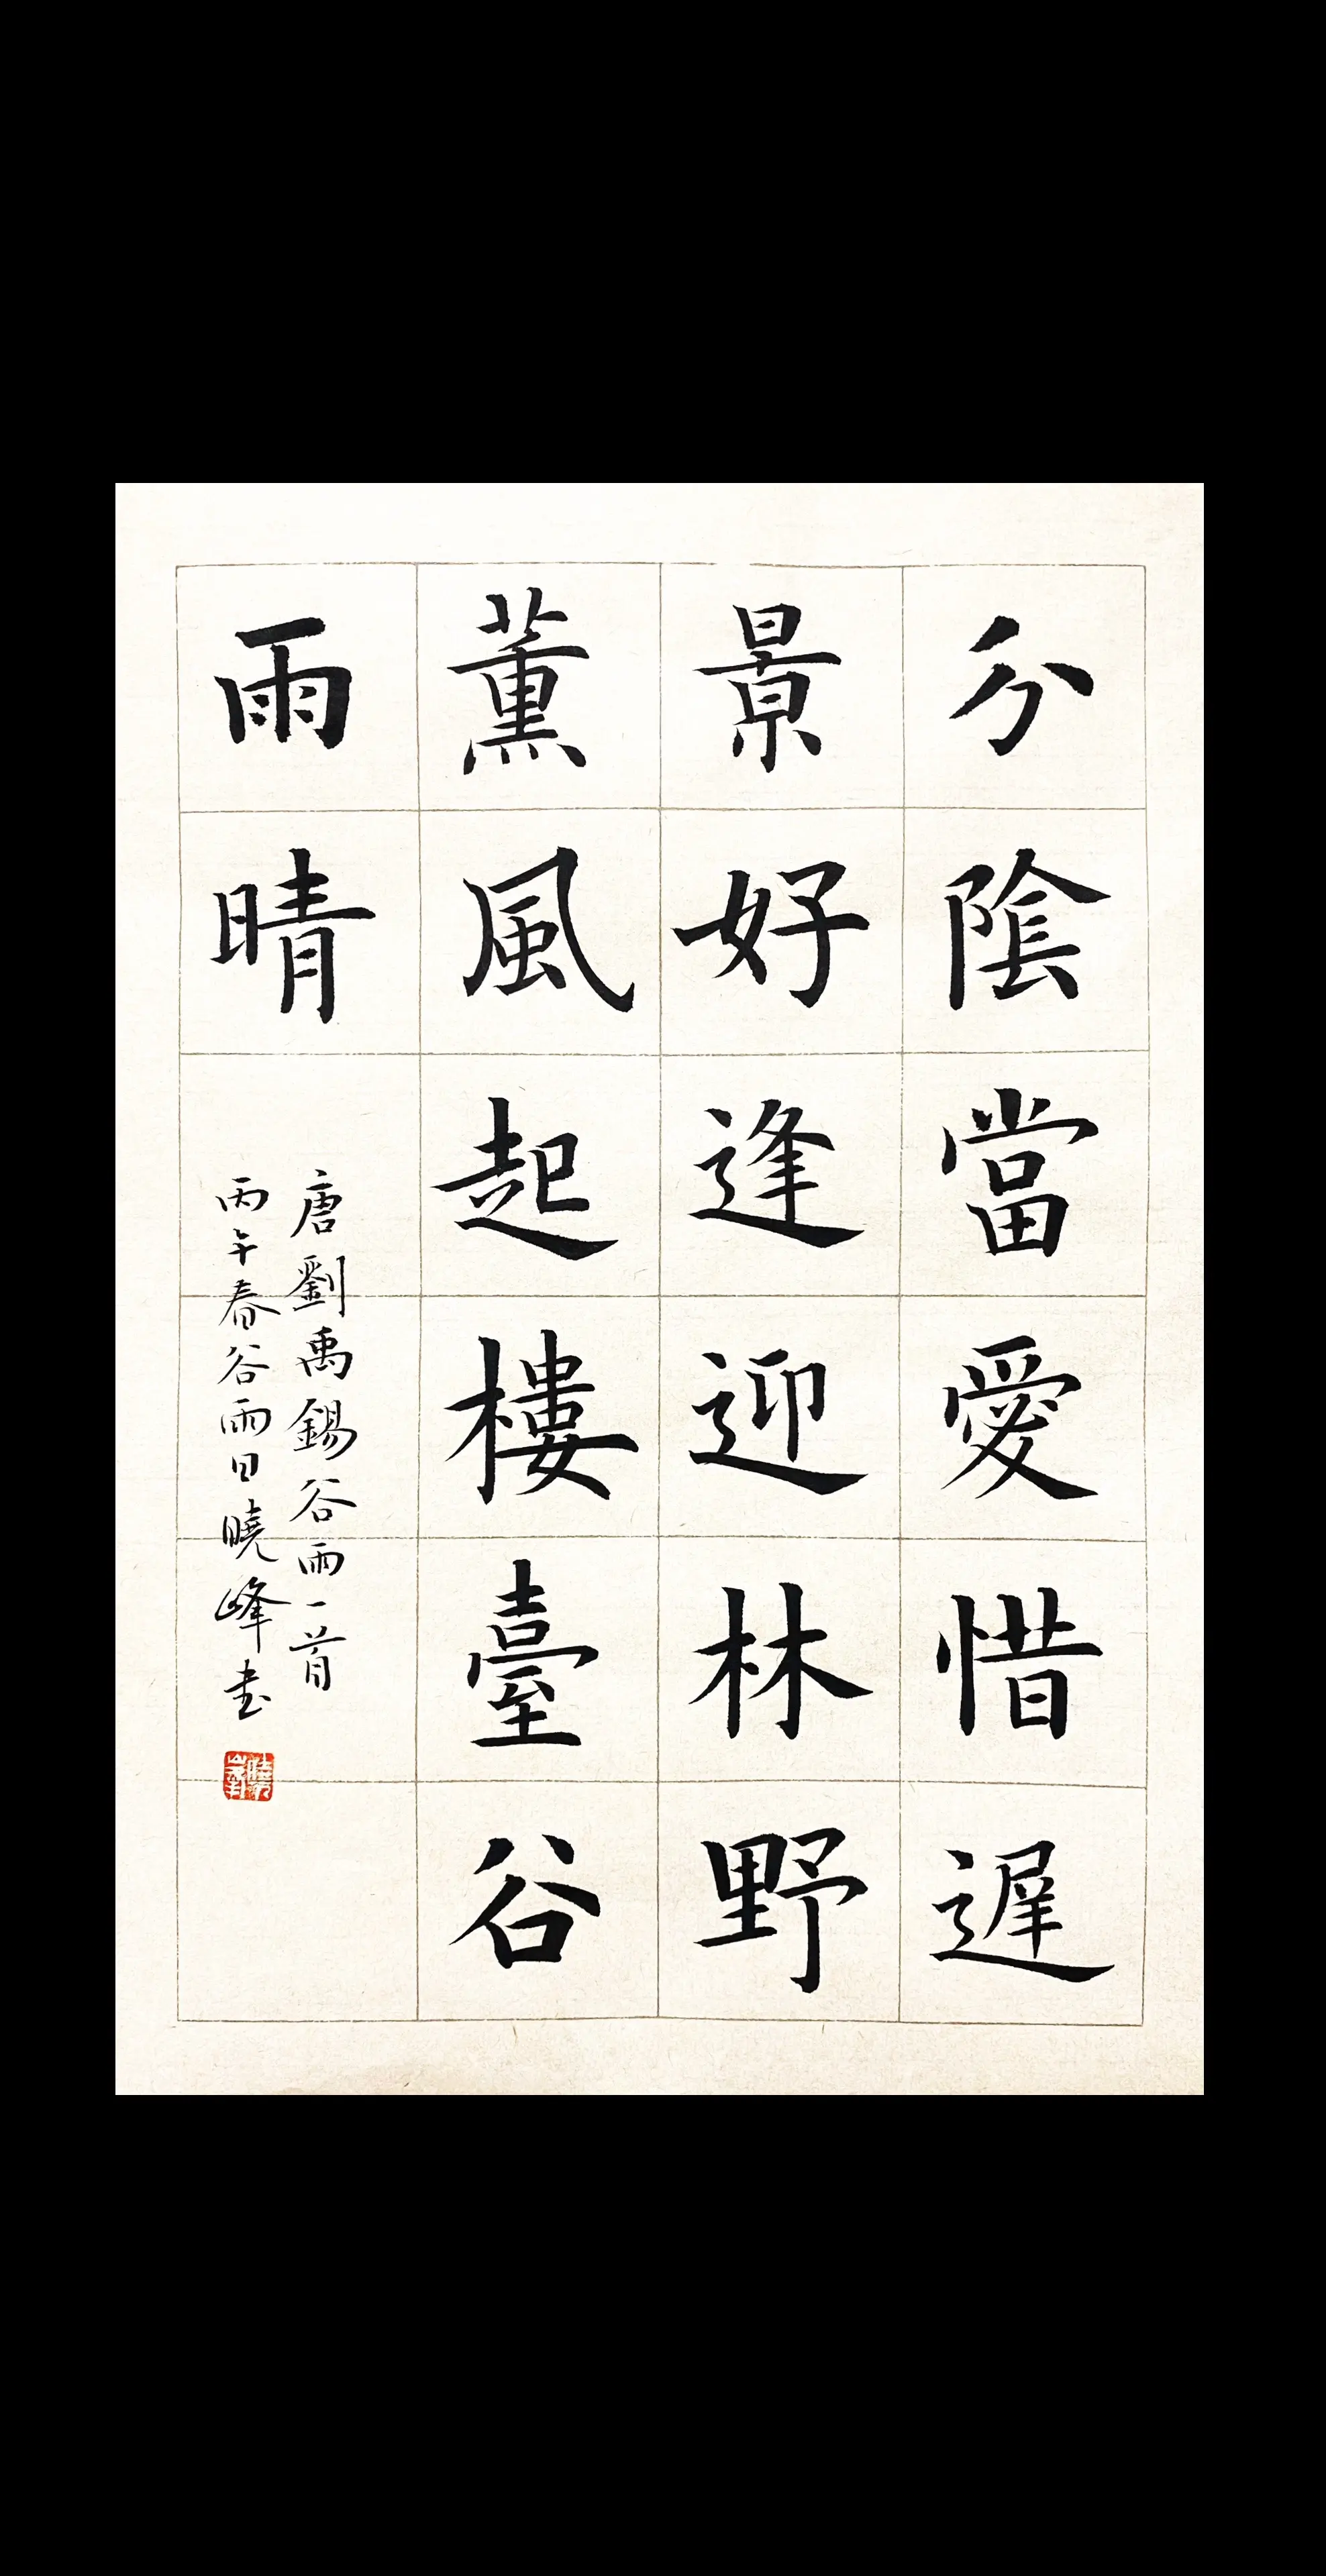 分陰當愛惜遲
景好逢迎林野
薰風起樓臺谷
雨晴
唐劉禹錫谷雨一首
丙午春谷雨日曉峰书
曉峰